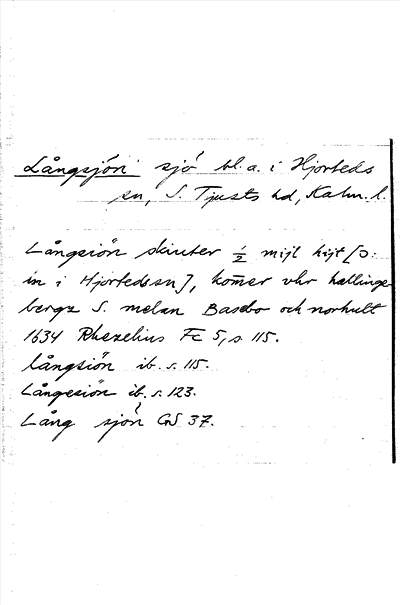 Långsjön sjö bl.a. i Hjorteds
sn, S. Tjusts hd, Kalm. l.
Långsiön skiuter ½ mijl hijt [ɔ:
in i Hjorteds sn], kom̄er vhr hallinge
bergz S. melan Basebo och norhult
1634 Rhezelius Fc 5, s 115.
långsiön ib. s. 115.
Långesiön ib. s. 123.
Lång sjön GS 37.